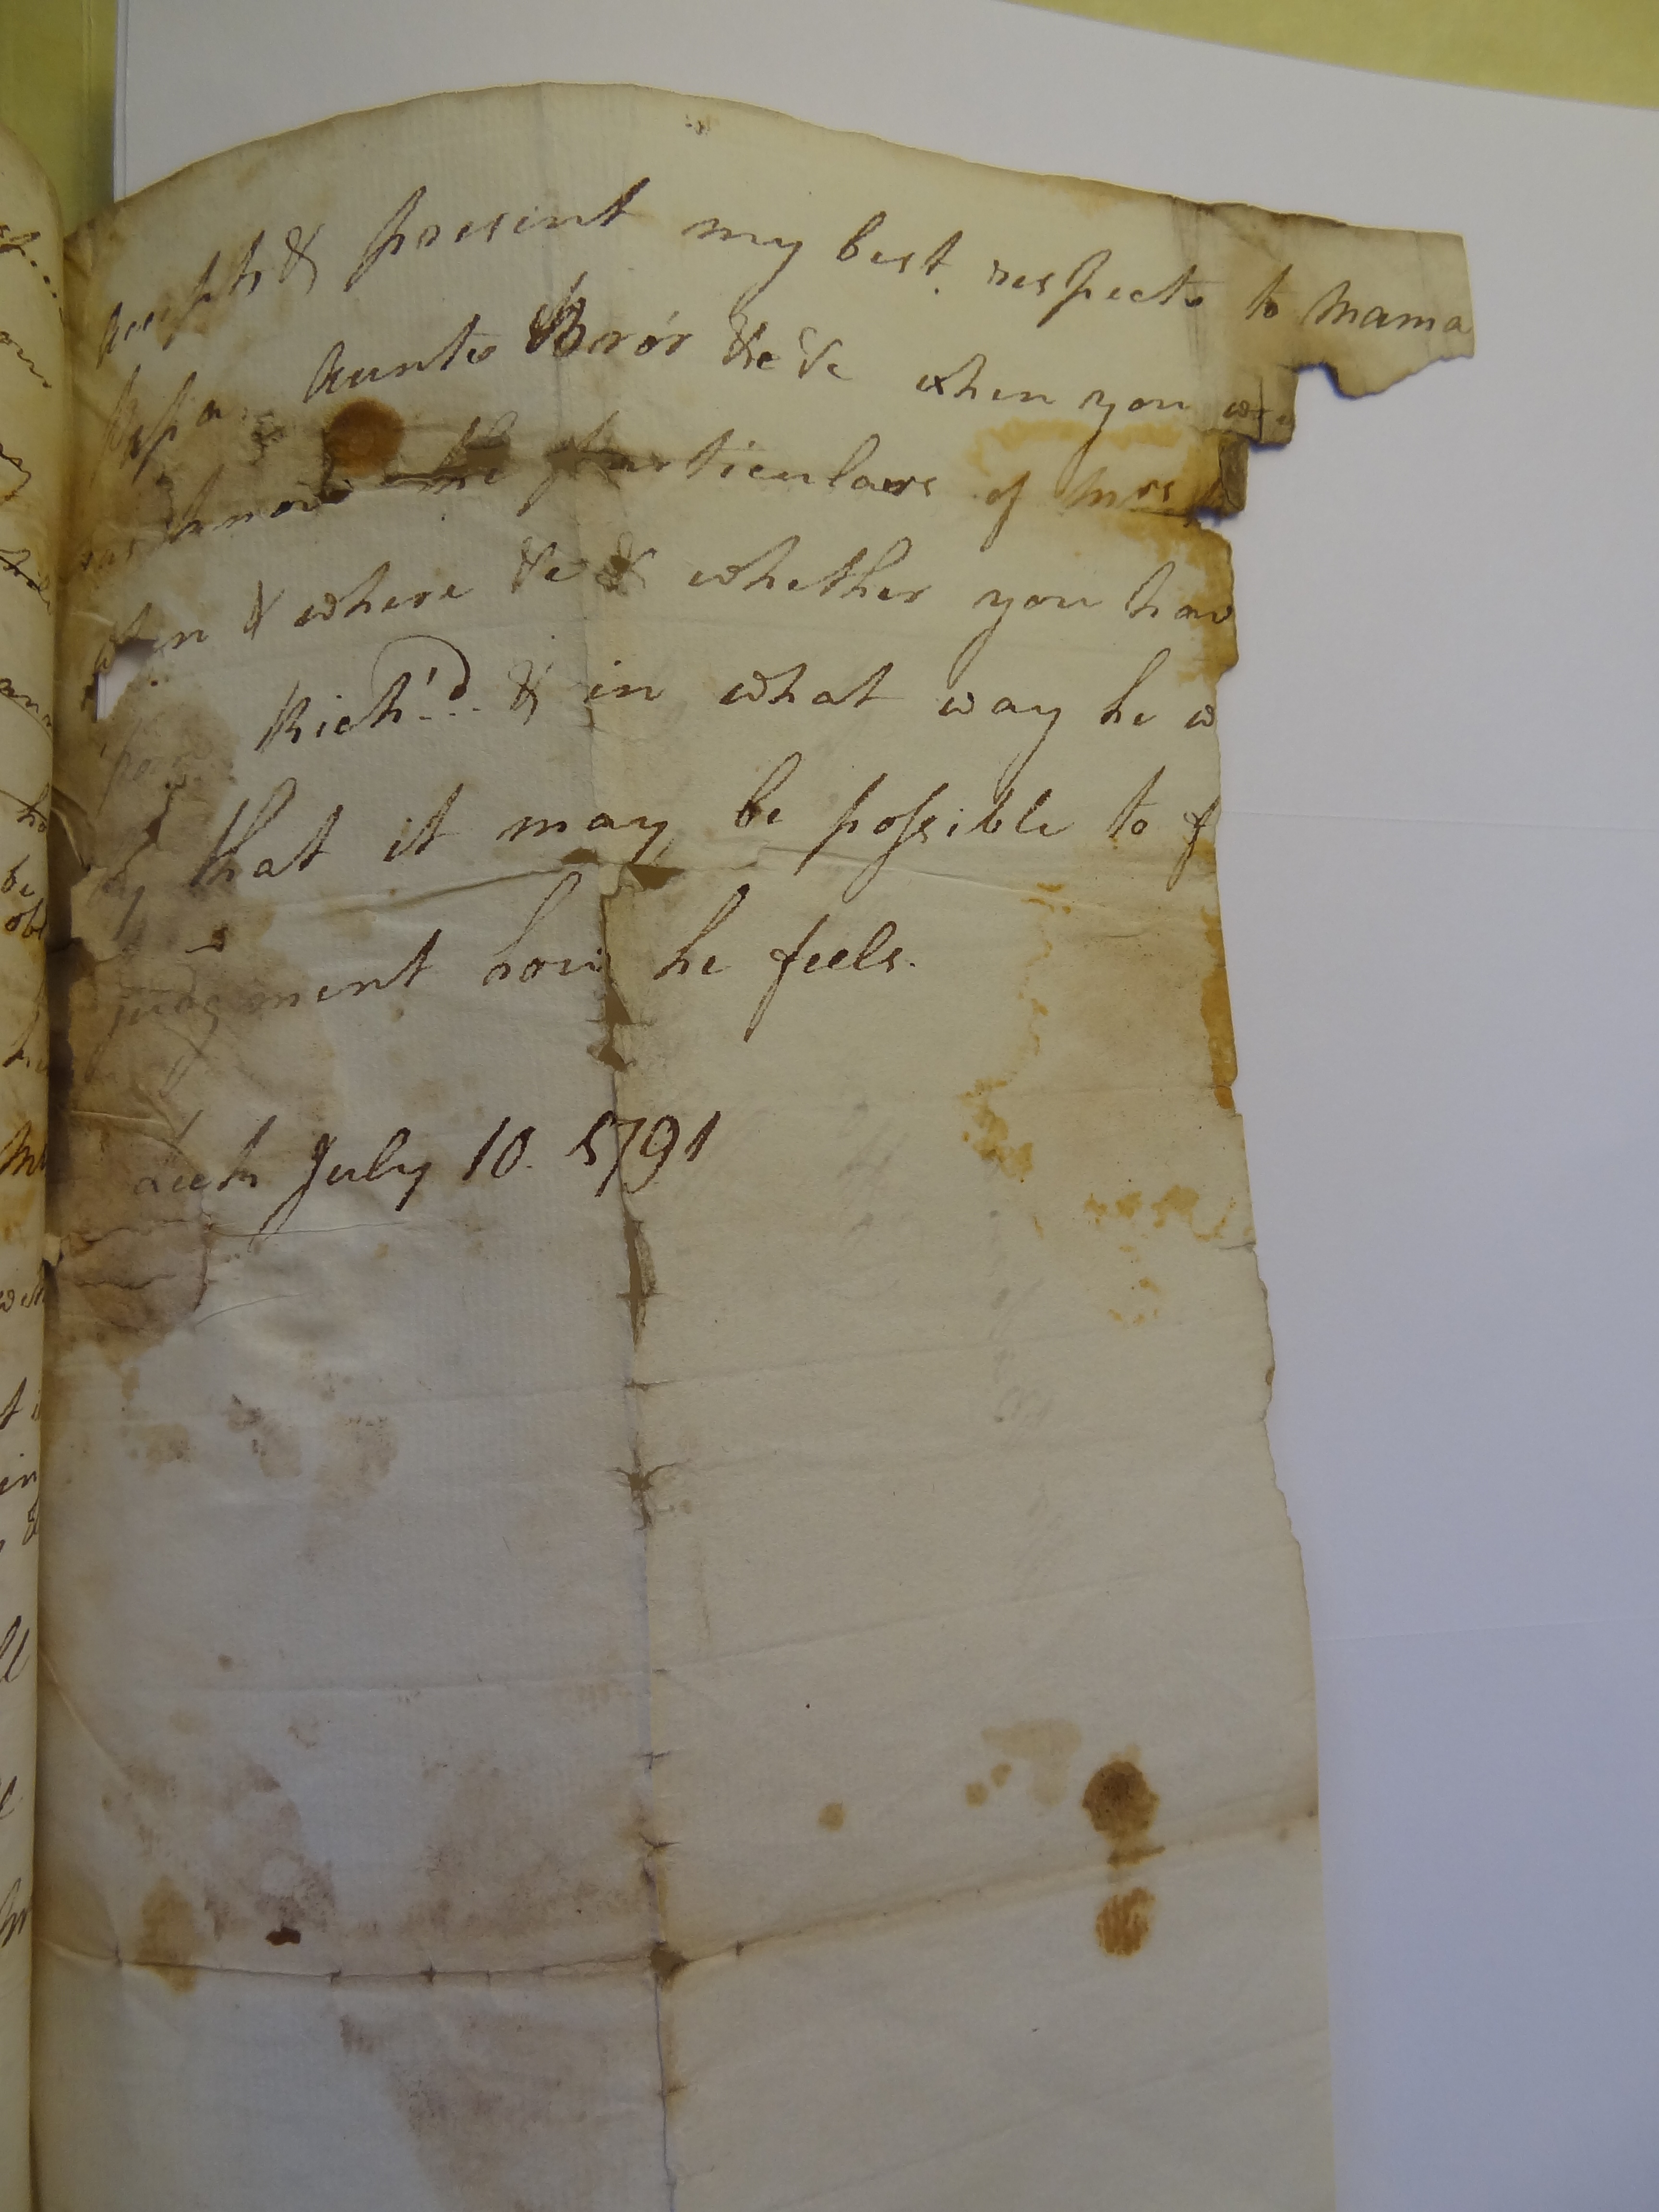 accept & present my best respects to Mama
Papa Aunts Bror &c &c when you
know the particulars of Mrs
when & where &c & whether you hav
Rich'd. & in what way he w
that it may be possible to f
judgment how he feels.
Leek July 10. 1791